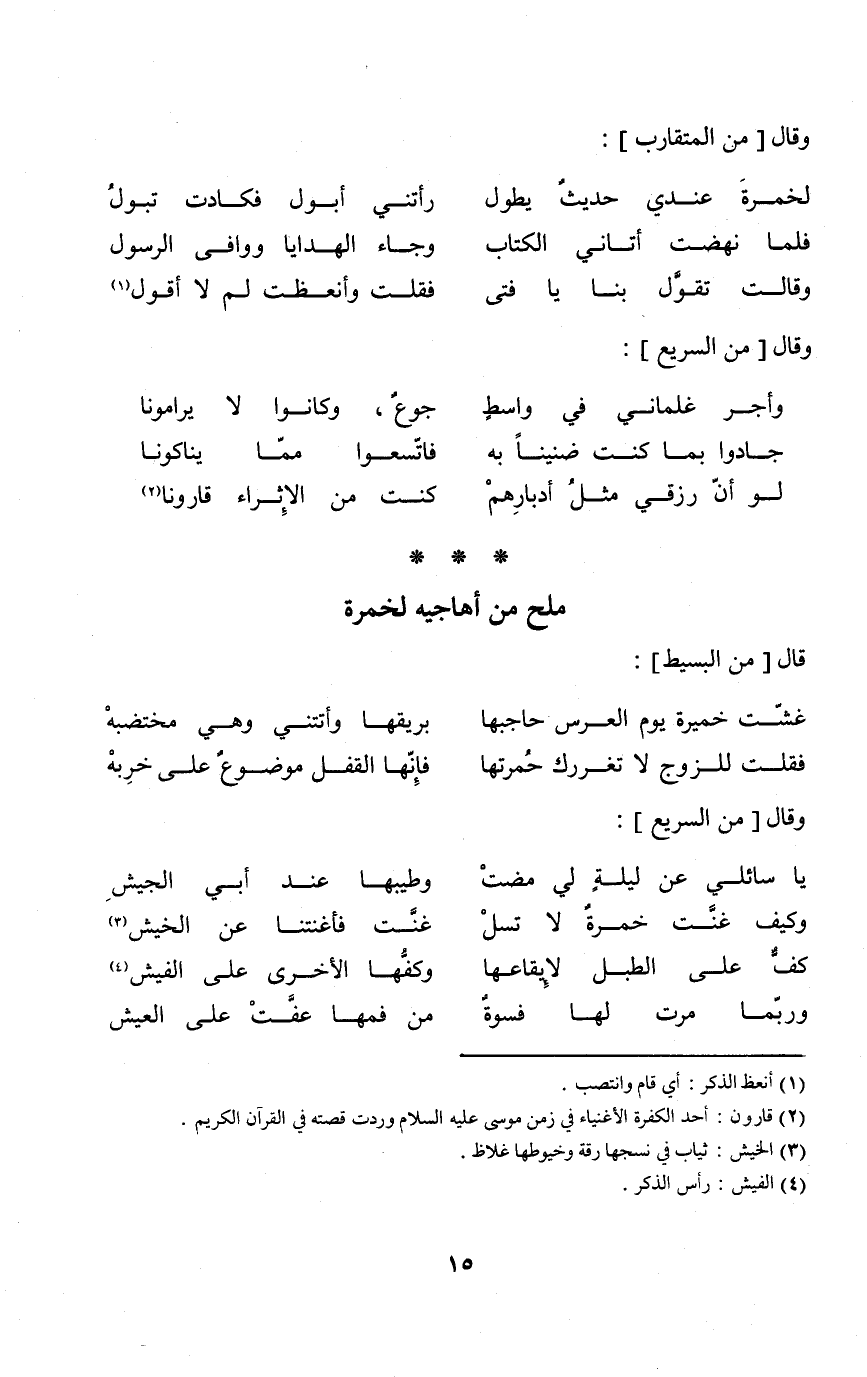 وقال [ من المتقارب ] :
لخمــرةَ عنــدي حديثٌ يطول رأتنــي أبــول فكــادت تبــولُ
فلمــا نهضــت أتــاني الكتاب وجــاء الهــدايا ووافــى الرسول
وقالــت تقوَّل بنــا يا فتى فقلــت وأنعــظت لــم لا أقول(١)
وقال [ من السريع ] :
وأجــر غلمانــي في واسطٍ جوعٌ ، وكانــوا لا يرامونا
جــادوا بمــا كنــت ضنينــاً به فاتّسعــوا ممّــا يناكونــا
لــو أنّ رزقــي مثــلُ أدبارِهمْ كنــت من الإثــراء قارونا(٢)
* * *
ملح من أهاجيه لخمرة
قال [ من البسيط] :
غشّــت خميرة يوم العــرس حاجبها بريقهــا وأتتنــي وهــي مختضبهْ
فقلــت للــزوج لا تغــررك حُمرتها فإنّهــا القفــل موضــوعٌ علــى خربهْ
وقال [ من السريع ] :
يا سائلــي عن ليلــةٍ لي مضتْ وطيبهــا عنــد أبــي الجيشِ
وكيف غنَّــت خمــرةٌ لا تسلْ غنَّــت فأغنتنــا عن الخيش(٣)
كفٌّ علــى الطبــل لإيقاعــها وكفُّهــا الأخــرى علــى الفيش(٤)
وربّمــا مرت لهــا فسوةٌ من فمهــا عفَّــتْ علــى العيش
(١) أنعظ الذكر : أي قام وانتصب .
(٢) قارون : أحد الكفرة الأغنياء في زمن موسى عليه السلام وردت قصته في القرآن الكريم .
(٣) الخيش : ثياب في نسجها رقة وخيوطها غلاظ .
(٤) الفيش : رأس الذكر .
١٥